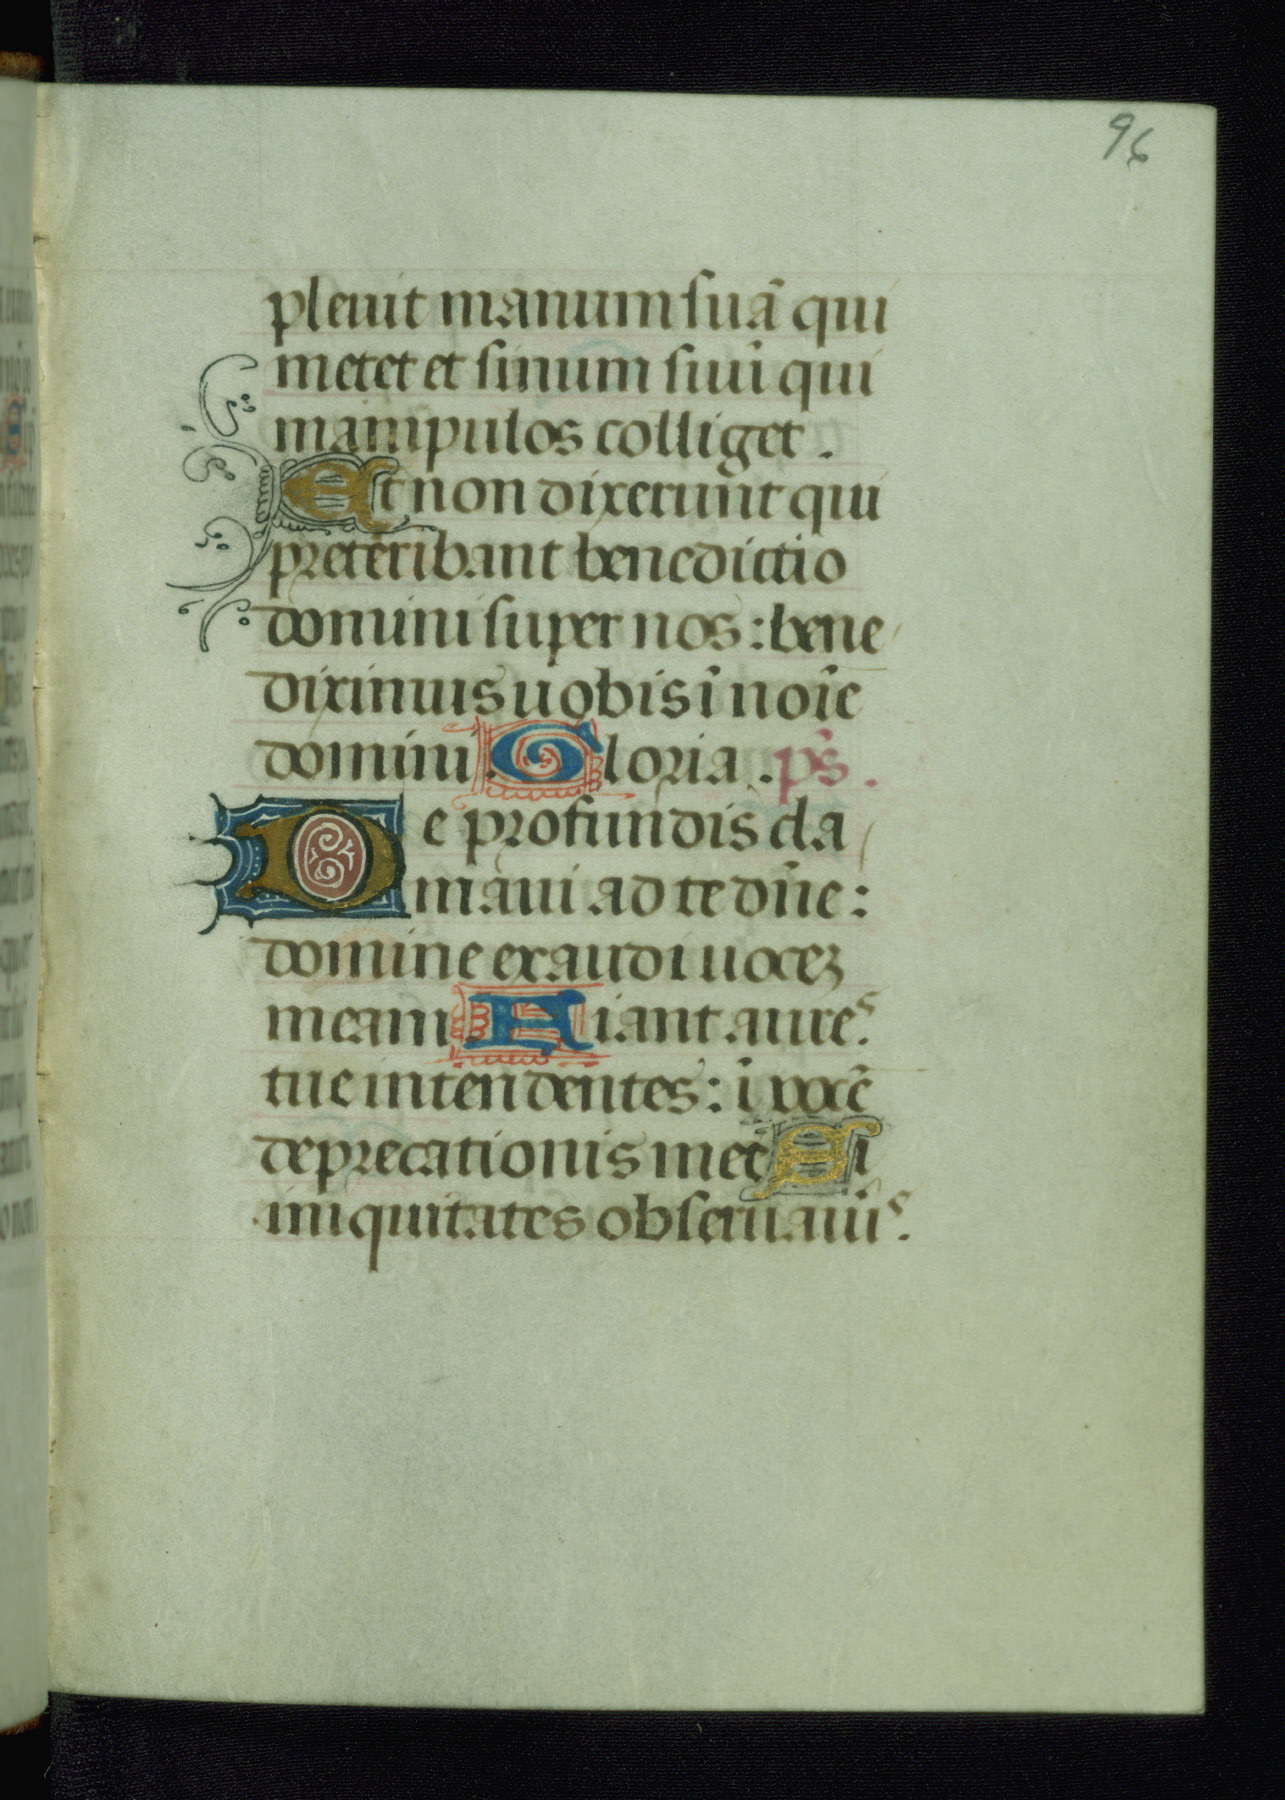 96
pleuit manum suā qui
metet et sinum suū qui
manipulos colliget.
Et non dixerunt qui
preteribant benedictio
domini super nos: bene
diximus uobis ī noīe
domini. Gloria. ps̄.
De profundis cla
maui ad te dn̄e:
domine exaudi uocez
meam. Fiant aures.
tue intendentes: ī uocē
deprecationis mee. Si
iniquitates obseruaūis.